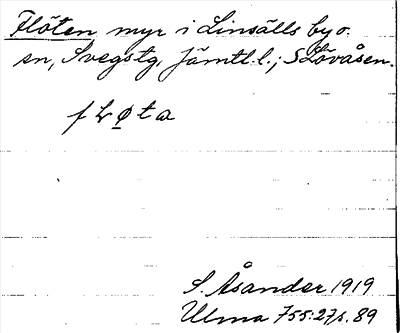 Flöten, myr i Linsälls by o.
sn, Svegs tg, Jämtl. l.; S Lövåsen.
f L ø t a
S. Åsander 1919
Ulma 755:27, s. 89